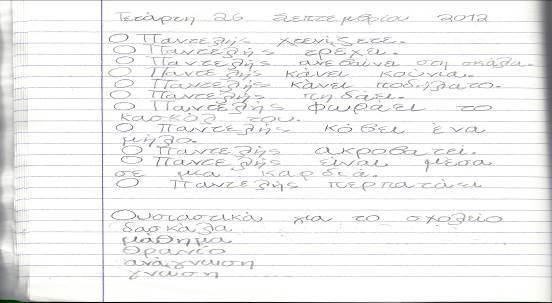 Τετάρτη 26 Σεπτεμβρίου 2012
Ο Παντελής χτενίζετε.
Ο Παντελής τρέχει.
Ο Παντελής ανεβαίνει στη σκάλα.
Ο Παντελής κάνει κούνια.
Ο Παντελής κάνει ποδήλατο.
Ο Παντελής πηδάει.
Ο Παντελής φωράει το
κασκόλ του.
Ο Παντελής κόβει ένα
μήλο.
Ο Παντελής ακροβατεί.
Ο Παντελής είναι μέσα
σε μια καρδιά.
Ο Παντελής περπατάει
Ουσιαστικά για το σχολείο
δασκάλα
μάθημα
θρανίο
ανάγνωση
γνώση